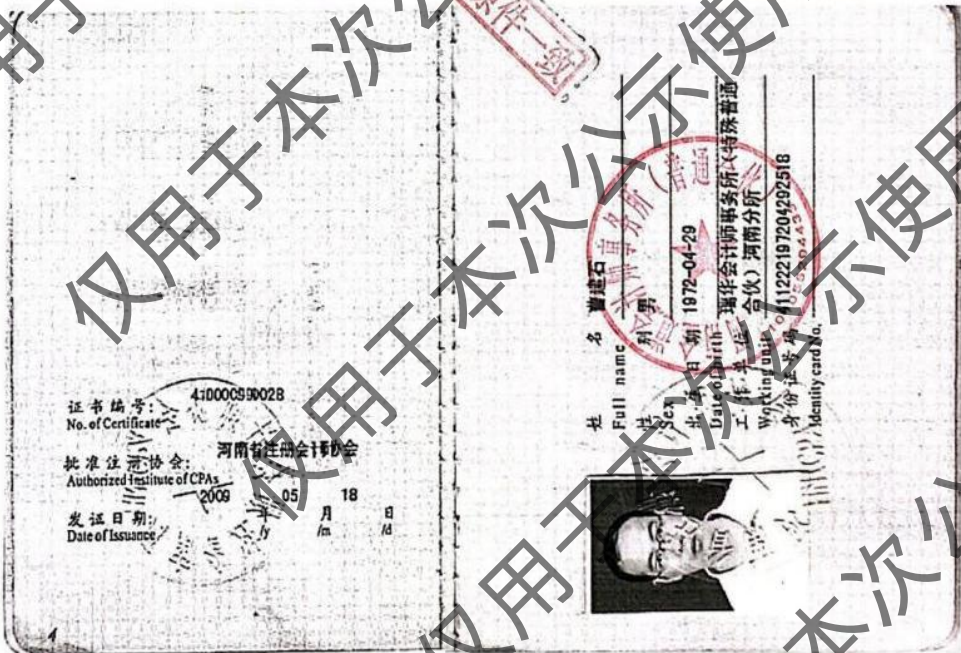 证书编号:
No. of Certificate
410000990028
批准注册协会:
Authorized Institute of CPAs
河南省注册会计师协会
发证日期:
Date of Issuance
2009 年 /y 05 月 /m 18 日 /d
4
件一致
姓 名
Full name
建石
性 别
Sex
男
出 生 日 期
Date of birth
1972-04-29
工 作 单 位
Working unit
瑞华会计师事务所(特殊普通
合伙)河南分所
身份证号码
Identity card No.
411222197204292518
仅用于本次公示使用
仅用于本次公示使用
仅用于本次公
本次公